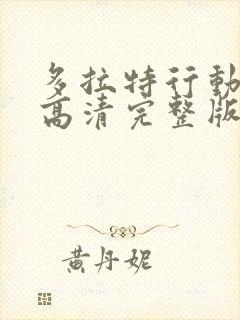 多拉特行動
高清完整版
黄丹妮